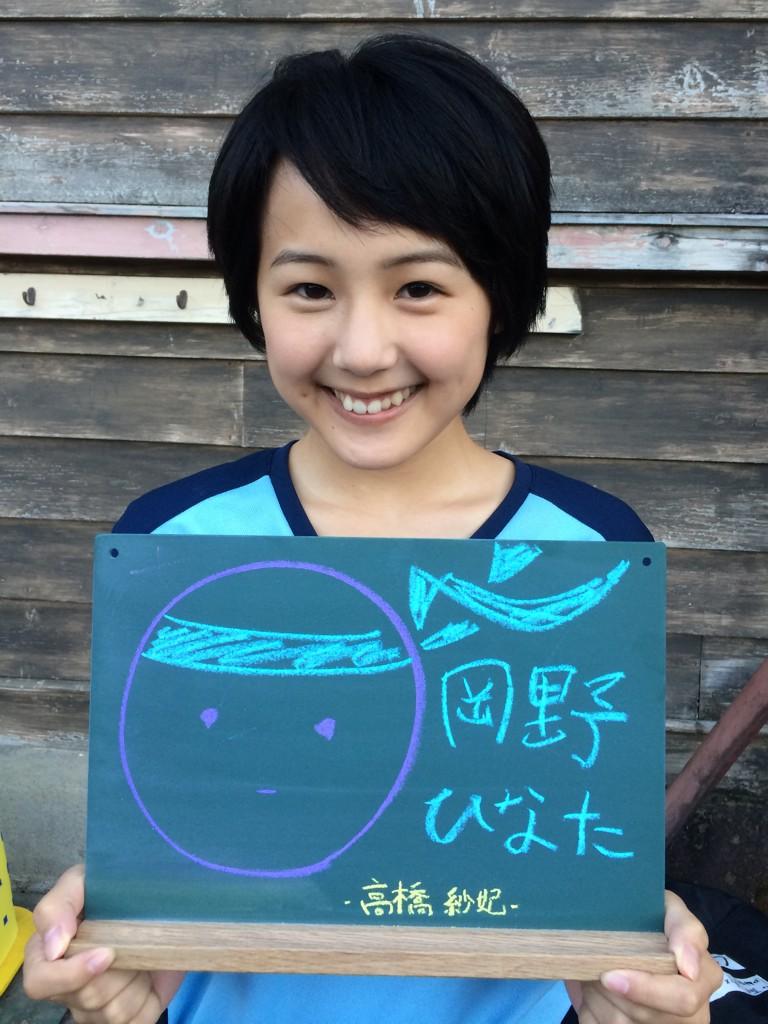 岡野
ひなた
-高橋 紗妃-